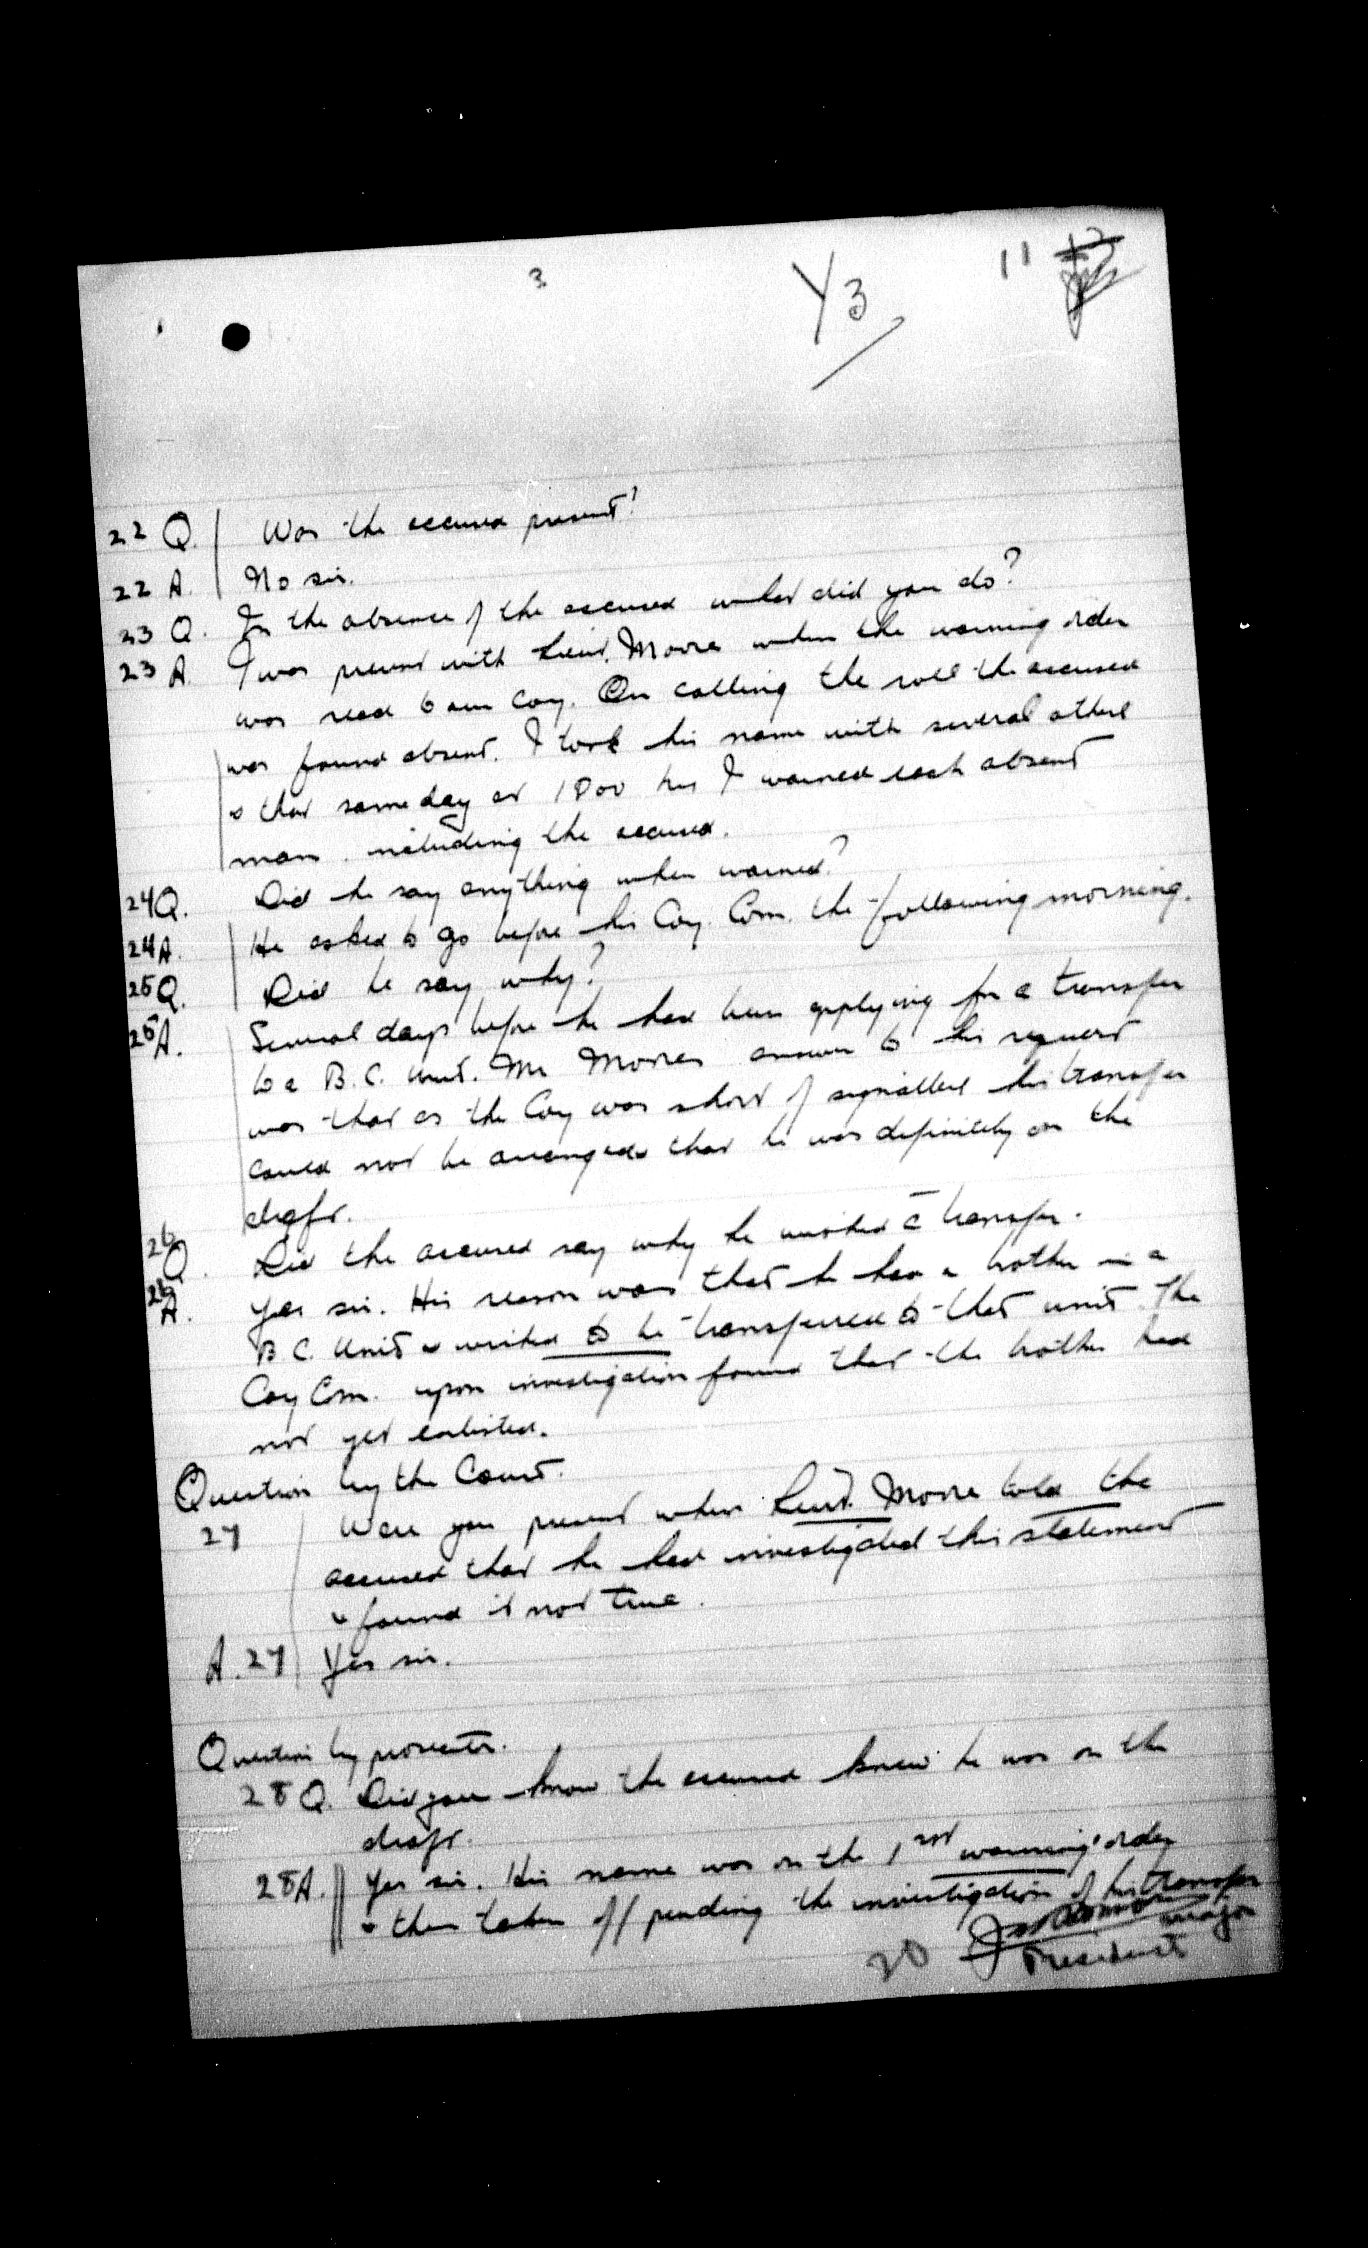 3
Y3
11
22 Q. Was the accused present?
22 A. No sir.
23 Q. In the absence of the accused what did you do?
23 A I was present with Lieut. Moore when the warning order
was read to our Coy. On calling the roll the accused
was found absent. I took his name with several others
& that same day at 1800 hrs I warned each absent
man including the accused.
24 Q. Did he say anything when warned?
24 A. He asked to go before his Coy. Com. the following morning.
25 Q. Did he say why?
25 A. Several days before he had been applying for a transfer
to a B.C. Unit. Mr Moores answer to his request
was that as the Coy was short of signallers his transfer
could not be arranged & that he was definitely on the
draft.
26 Q. Did the accused say why he wished a transfer.
26 A. Yes sir. His reason was that he had a brother in a
B.C. Unit & wished to be transferred to that unit. The
Coy Com. upon investigation found that the brother had
not yet enlisted.
Question by the Court.
27 Were you present when Lieut. Moore told the
accused that he had investigated this statement
& found it not true.
A. 27 Yes sir.
Question by prosecutor.
28 Q. Did you know the accused knew he was on the
draft.
28 A. Yes sir. His name was on the 1st warning order
& then taken off pending the investigation of his transfer
Major
20 President